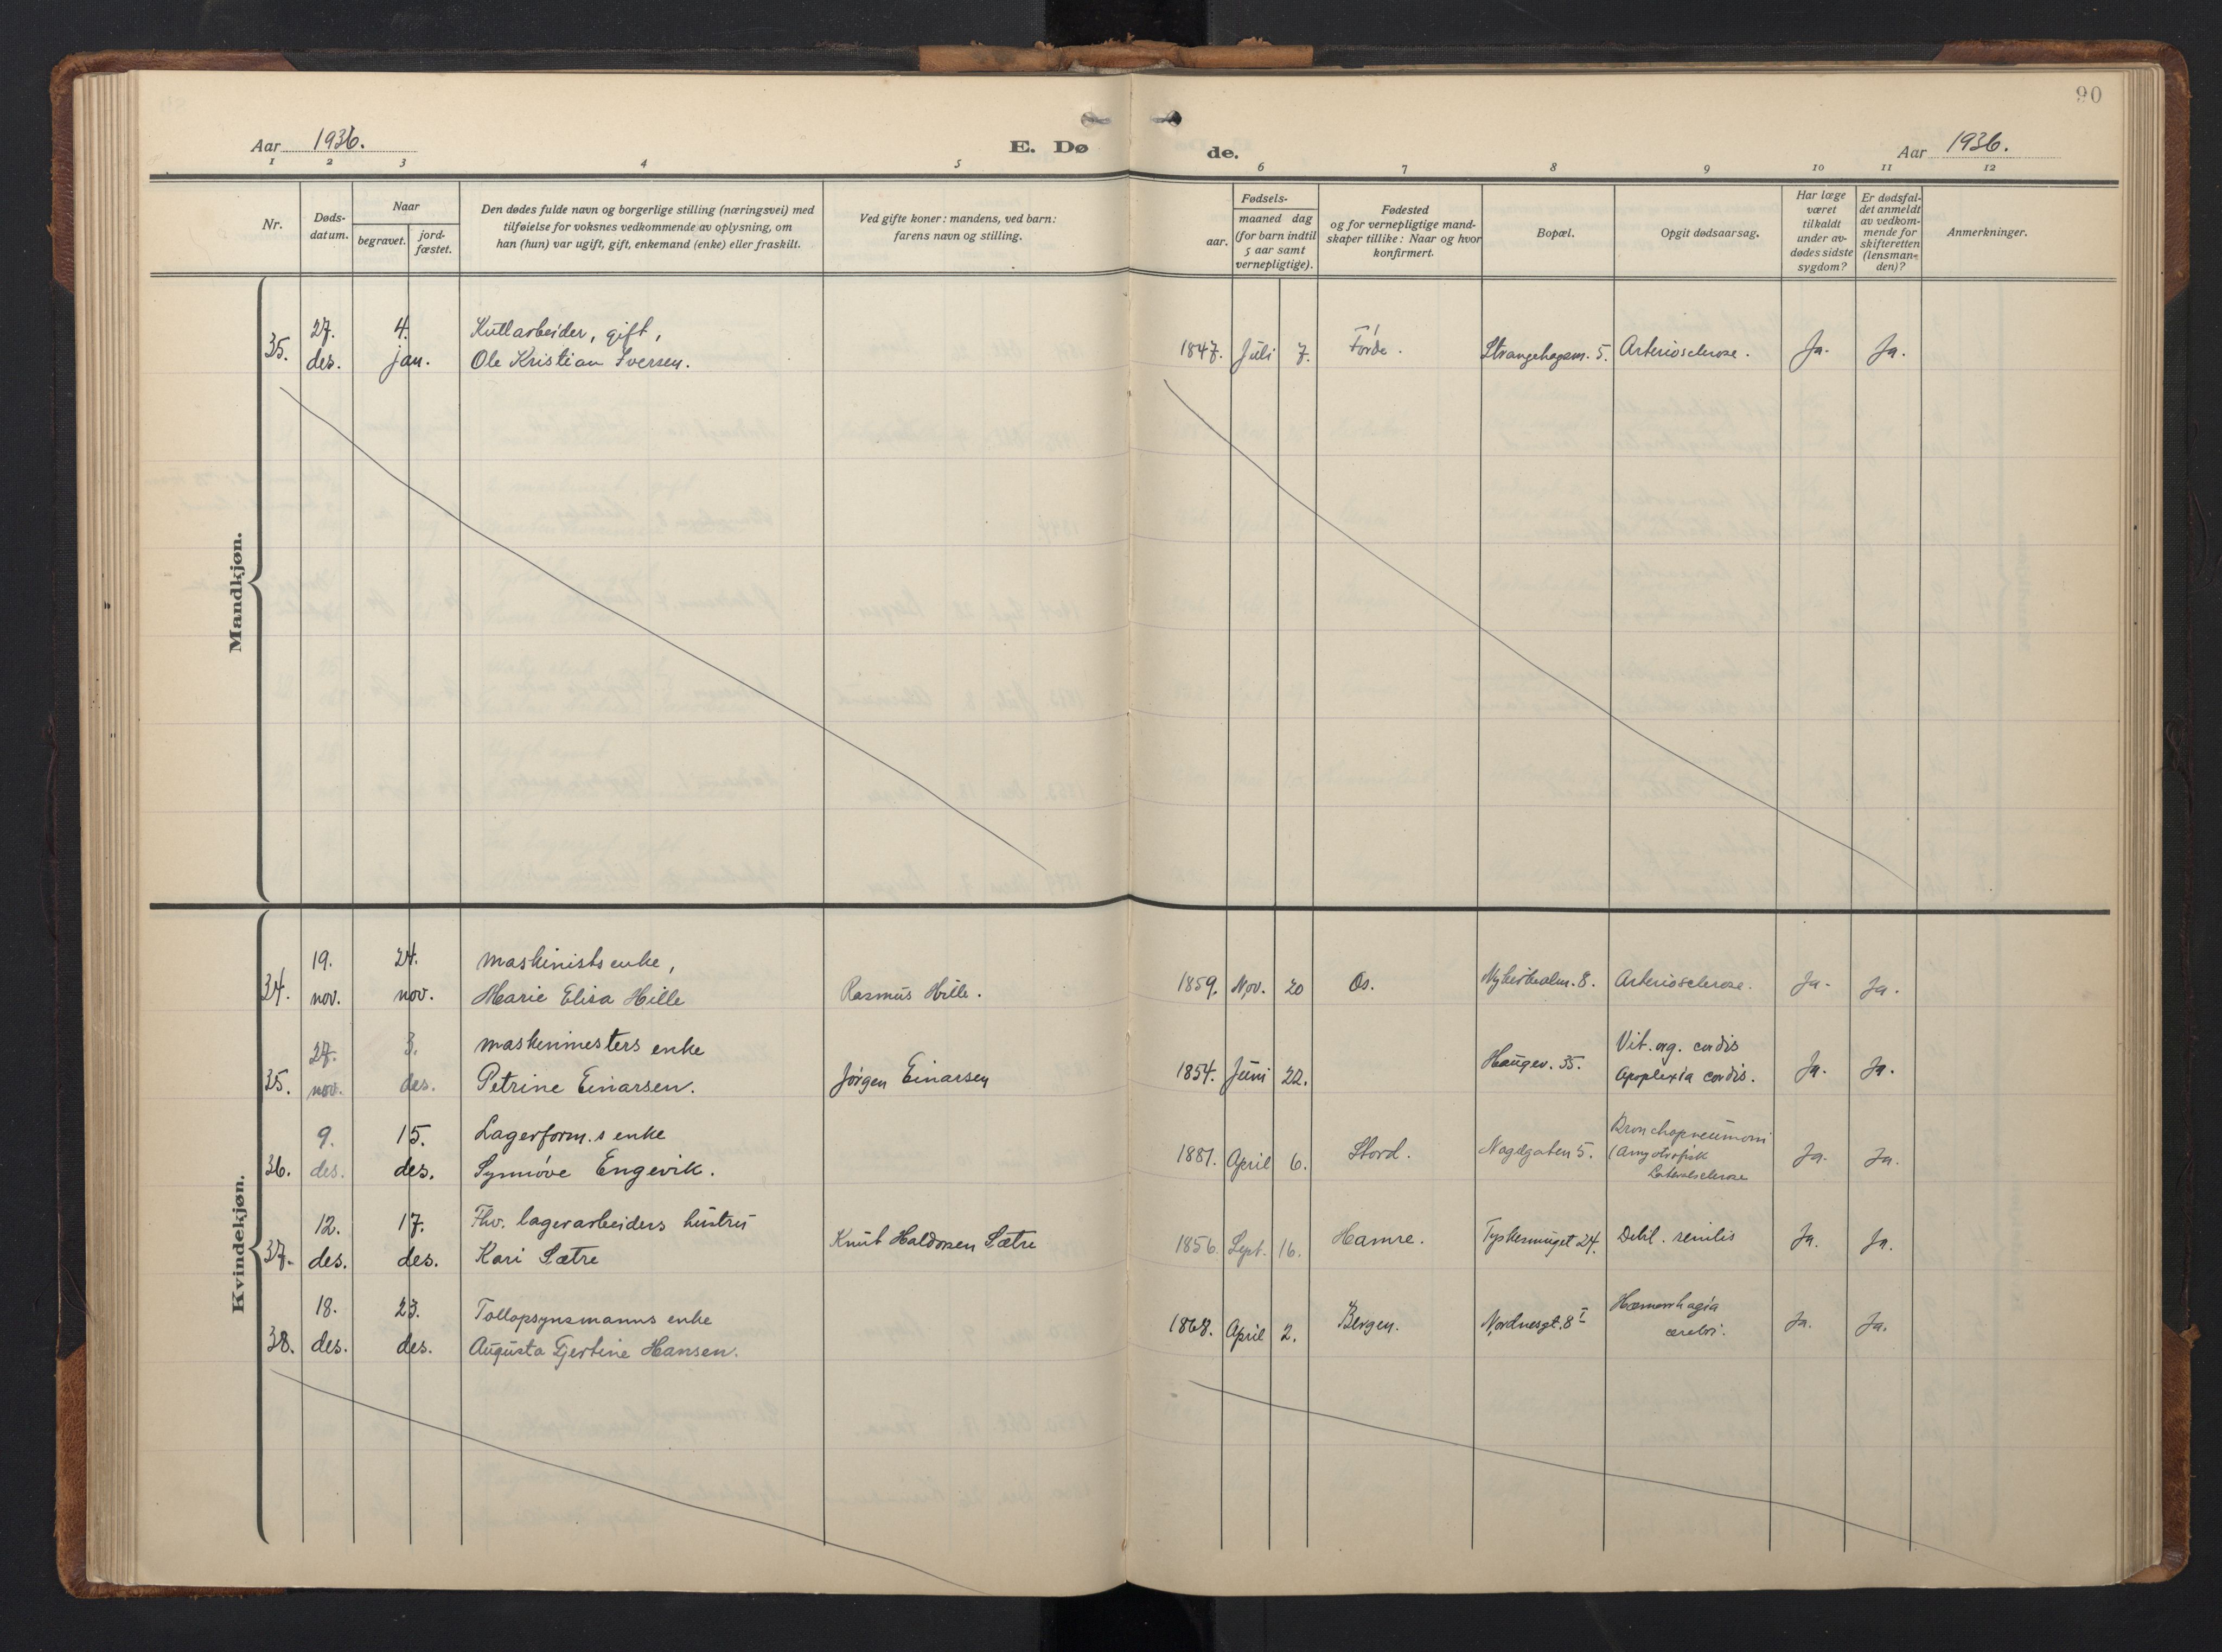 90
Aar 1936.
E. Dø
de.
Aar 1936.
1 2 3 4 5 6 7 8 9 10 11 12
Nr.
Døds-
datum.
Naar
begravet.
jord-
fæstet.
Den dødes fulde navn og borgerlige stilling (næringsvei) med
tilføielse for voksnes vedkommende av oplysning, om
han (hun) var ugift, gift, enkemand (enke) eller fraskilt.
Ved gifte koner: mandens, ved barn:
farens navn og stilling.
aar.
Fødsels-
maaned dag
(for barn indtil
5 aar samt
vernepligtige).
Fødested
og for vernepligtige mand-
skaper tillike: Naar og hvor
konfirmert.
Bopæl.
Opgit dødsaarsag.
Har læge
været
tilkaldt
under av-
dødes sidste
sygdom?
Er dødsfal-
det anmeldt
av vedkom-
mende for
skifteretten
(lensman-
den)?
Anmerkninger.
Mandkjøn.
27. 4. Kullarbeider, gift,
35. des. jan. Ole Kristian Iversen. 1847. Juli 7. Førde. Strangehagen. 5. Arteriosclerose. Ja. Ja.
Kvindekjøn.
19. 24. maskinists enke,
34. nov. nov. Marie Elisa Hille Rasmus Hille. 1859. Nov. 20 Os. Nykirkealm. 8. Arteriosclerose. Ja. Ja.
27. 3. maskinmesters enke Vit. org. cordis
35. nov. des. Petrine Einarsen. Jørgen Einarsen 1854. Juni 22. Haugev. 35. Apoplexia cordis. Ja. Ja.
9. 15. Lagerform.s enke Bronchopneumoni
36. des. des. Synnøve Engevik. 1881. April 6. Stord. Nagelgaten 5. (Amyotrofisk Ja. Ja.
Lateralsclerose
12. 17. Fhv. lagerarbeiders hustru
37. des. des. Kari Sætre Knut Haldorsen Sætre 1856. Sept. 16. Hamre. Tyskesmuget 24. Debil. senilis Ja. Ja.
18. 23. Tollopsynsmanns enke Hæmorrhagia
38. des. des. Augusta Gjertine Hansen. 1868. April 2. Bergen. Nordnesgt. 8 I cerebri. Ja. Ja.